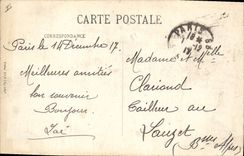 CARTE POSTALE
CORRESPONDANCE
PARIS
Paris le 14 Décembre 17.
Meilleures amitiés
bon souvenir
Bonjour
Madame et Mlle
Clairand
Tailleur au
Lauzet
Bses Alpes